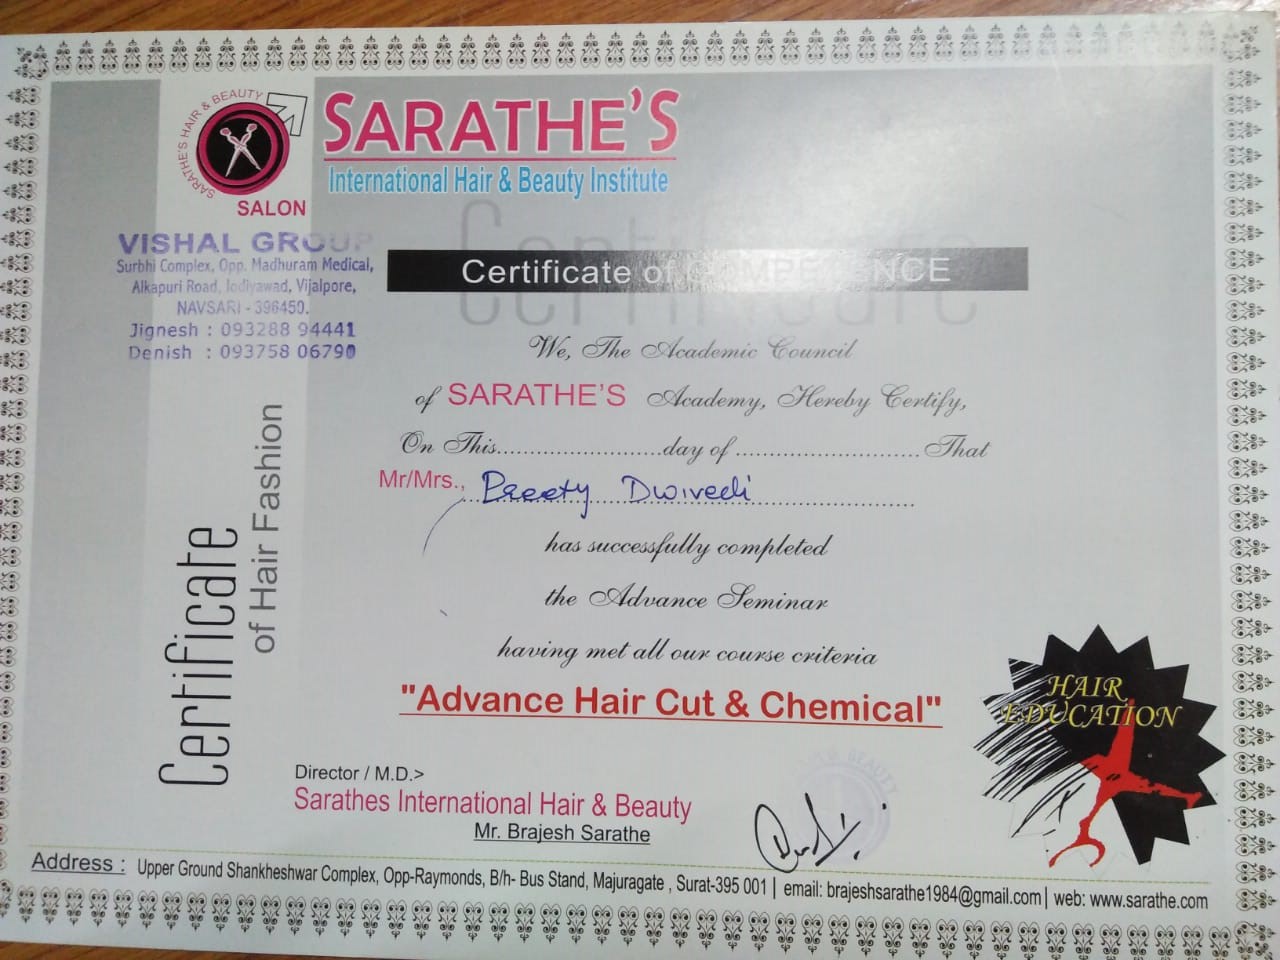 SARATHE'S HAIR & BEAUTY
SALON
SARATHE'S
International Hair & Beauty Institute
VISHAL GROUP
Surbhi Complex, Opp. Madhuram Medical,
Alkapuri Road, Jodiyawad, Vijalpore,
NAVSARI - 396450.
Jignesh : 093288 94441
Denish : 093758 06790
Certificate
Certificate of COMPETENCE
We, The Academic Council
of SARATHE'S Academy, Hereby Certify,
On This..............................day of .................................. That
Mr/Mrs., Preety Dwivedi
has successfully completed
the Advance Seminar
having met all our course criteria
"Advance Hair Cut & Chemical"
Certificate
of Hair Fashion
HAIR
EDUCATION
BEAUTY
Director / M.D.>
Sarathes International Hair & Beauty
Mr. Brajesh Sarathe
Address : Upper Ground Shankheshwar Complex, Opp-Raymonds, B/h- Bus Stand, Majuragate , Surat-395 001 | email: brajeshsarathe1984@gmail.com | web: www.sarathe.com